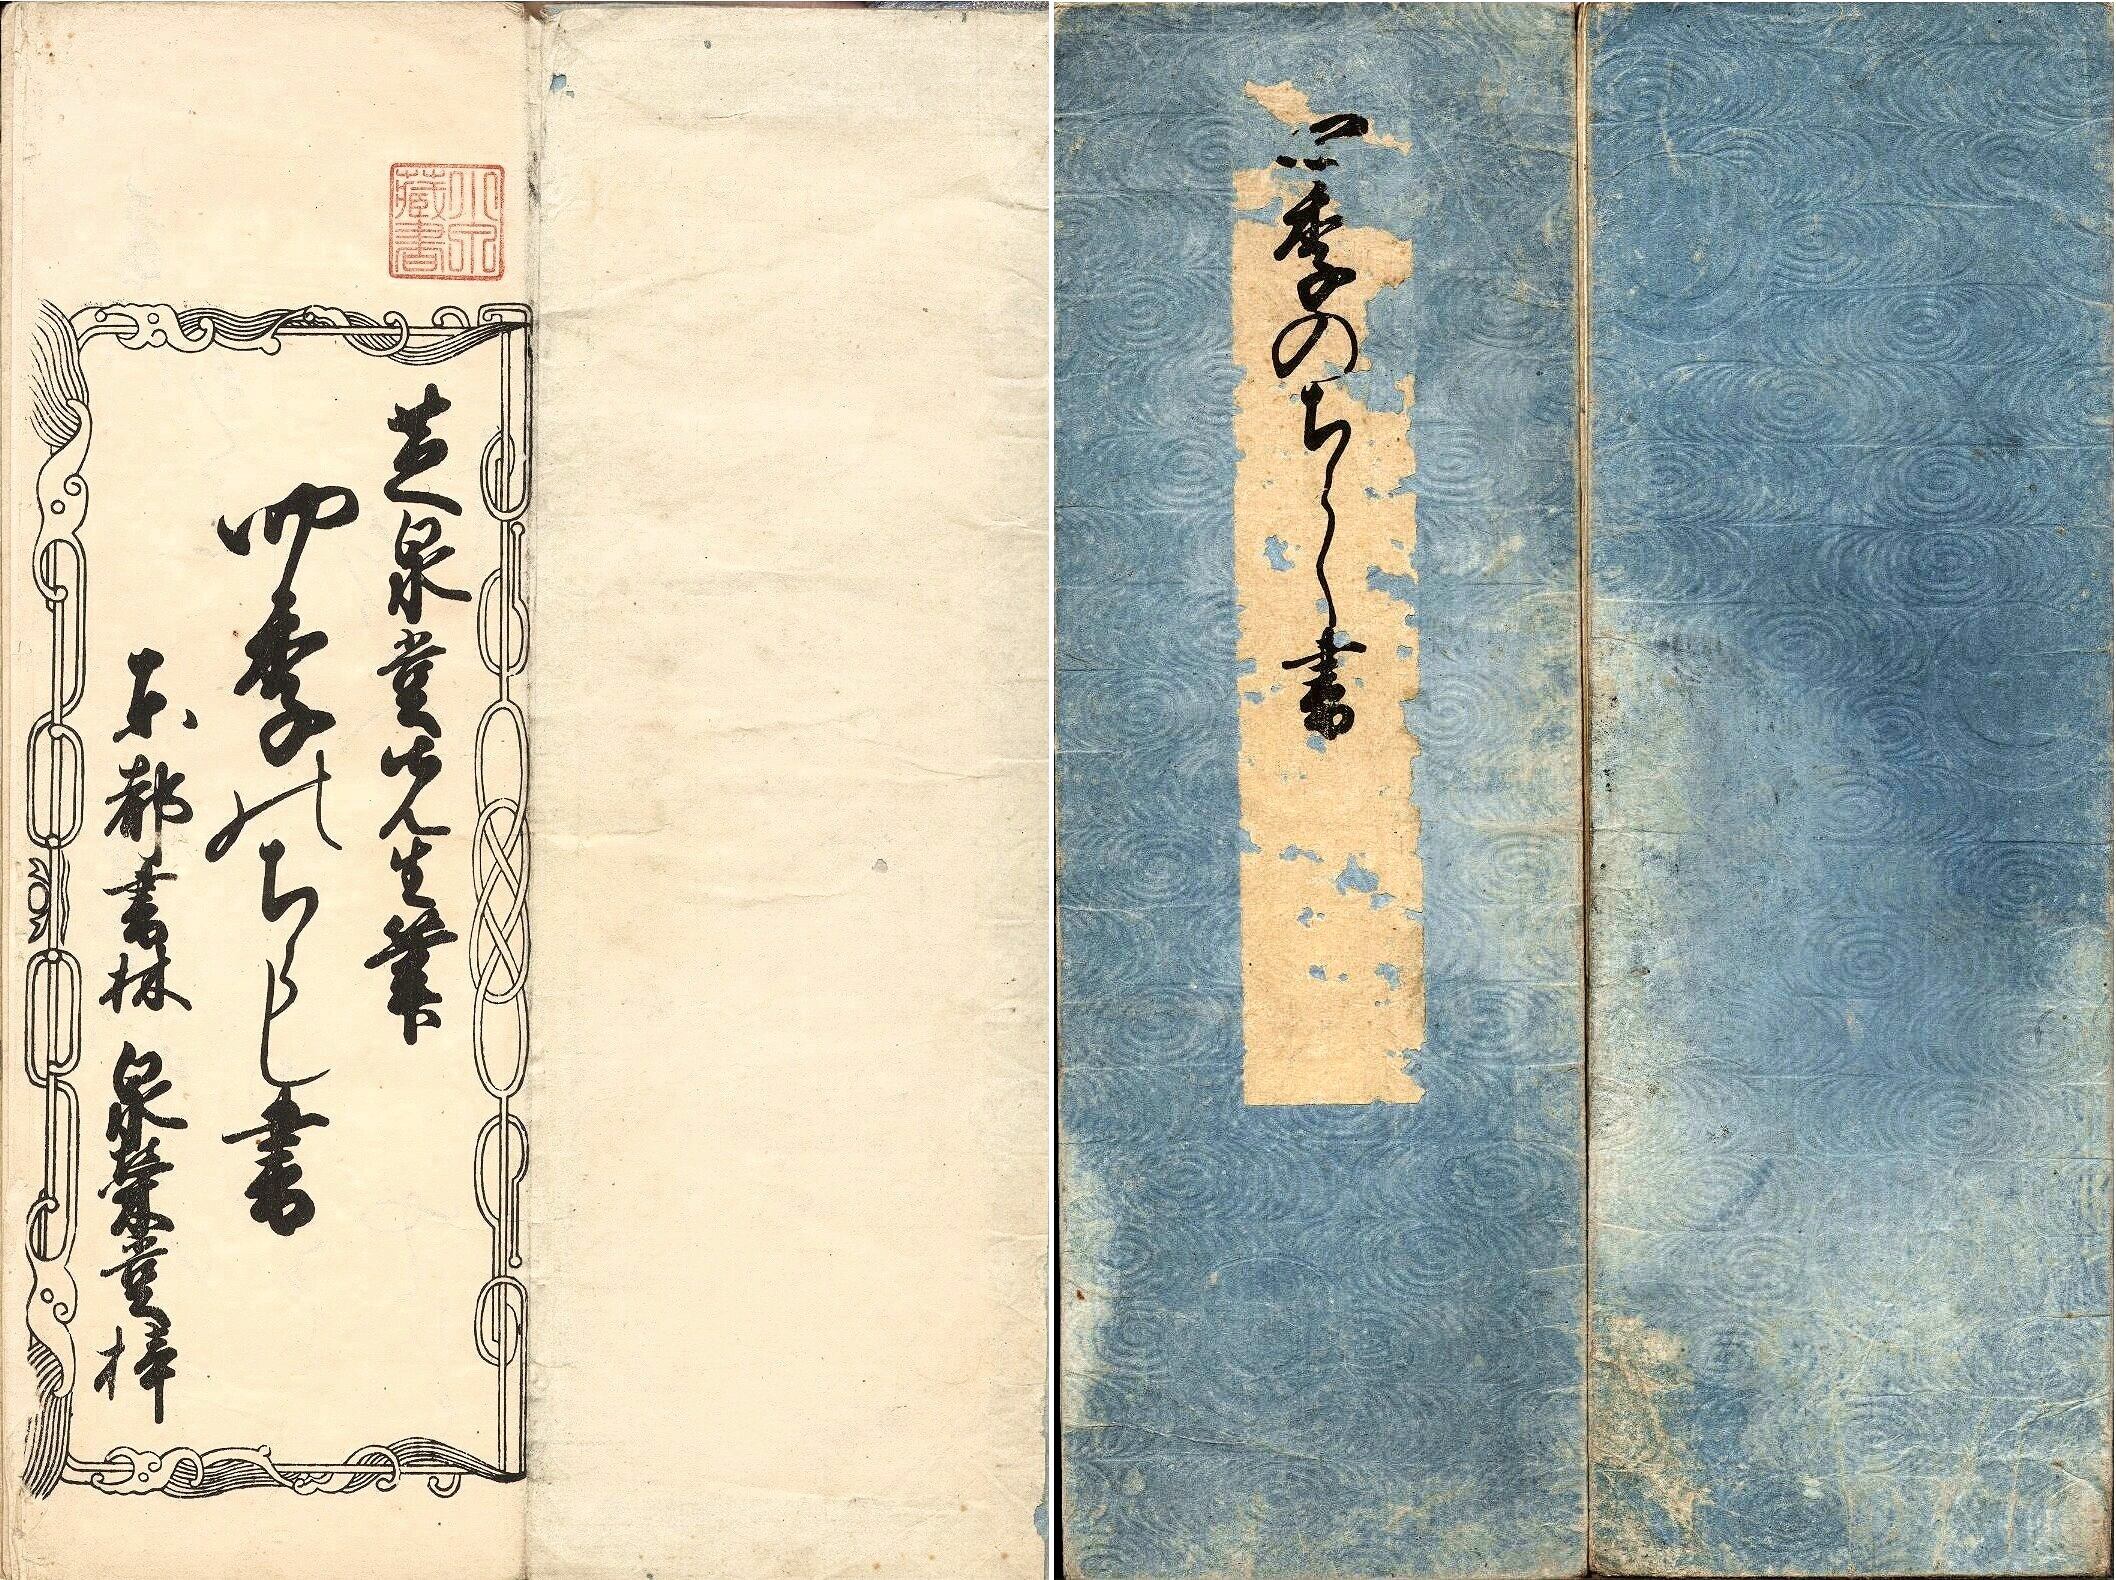 小泉
藏書
芝泉堂先生筆
四季のちらし書
東都書林 泉榮堂梓
四季のちらし書